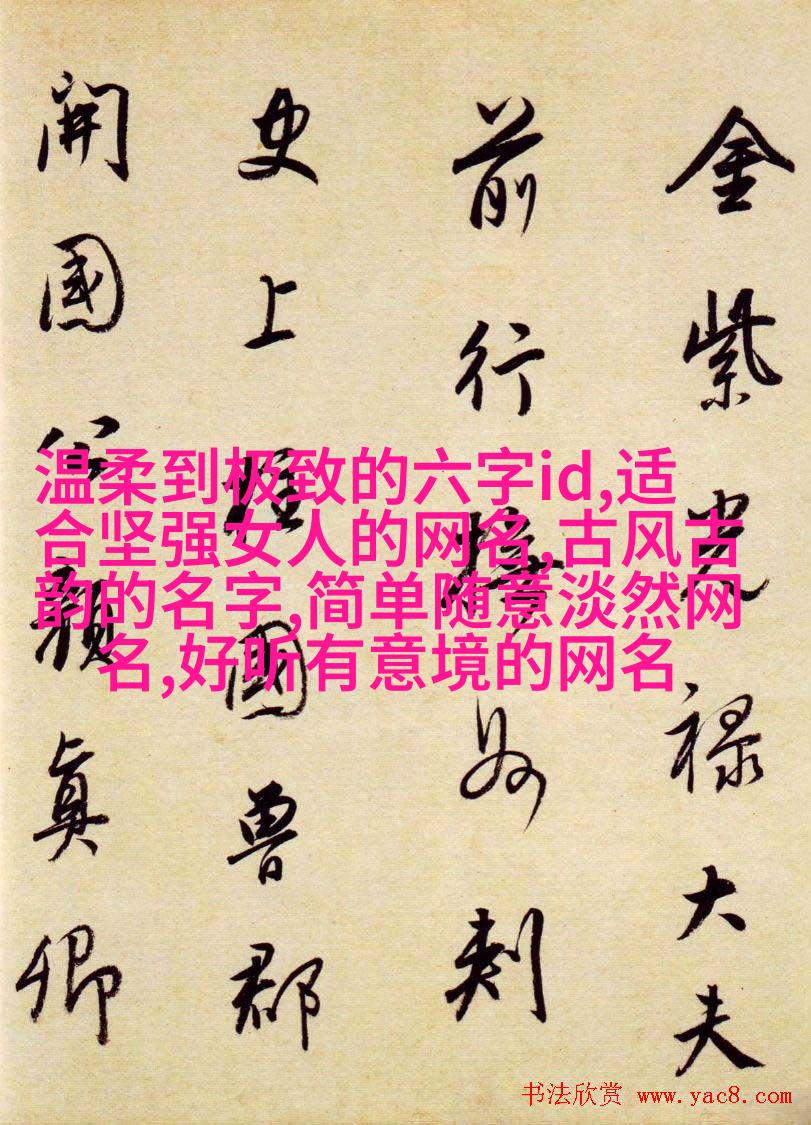 金紫光禄大夫
前行撫州刺
史上柱國魯郡
開國公顏真卿
温柔到极致的六字id,适
合坚强女人的网名,古风古
韵的名字,简单随意淡然网
名,好听有意境的网名
书法欣赏 www.yac8.com